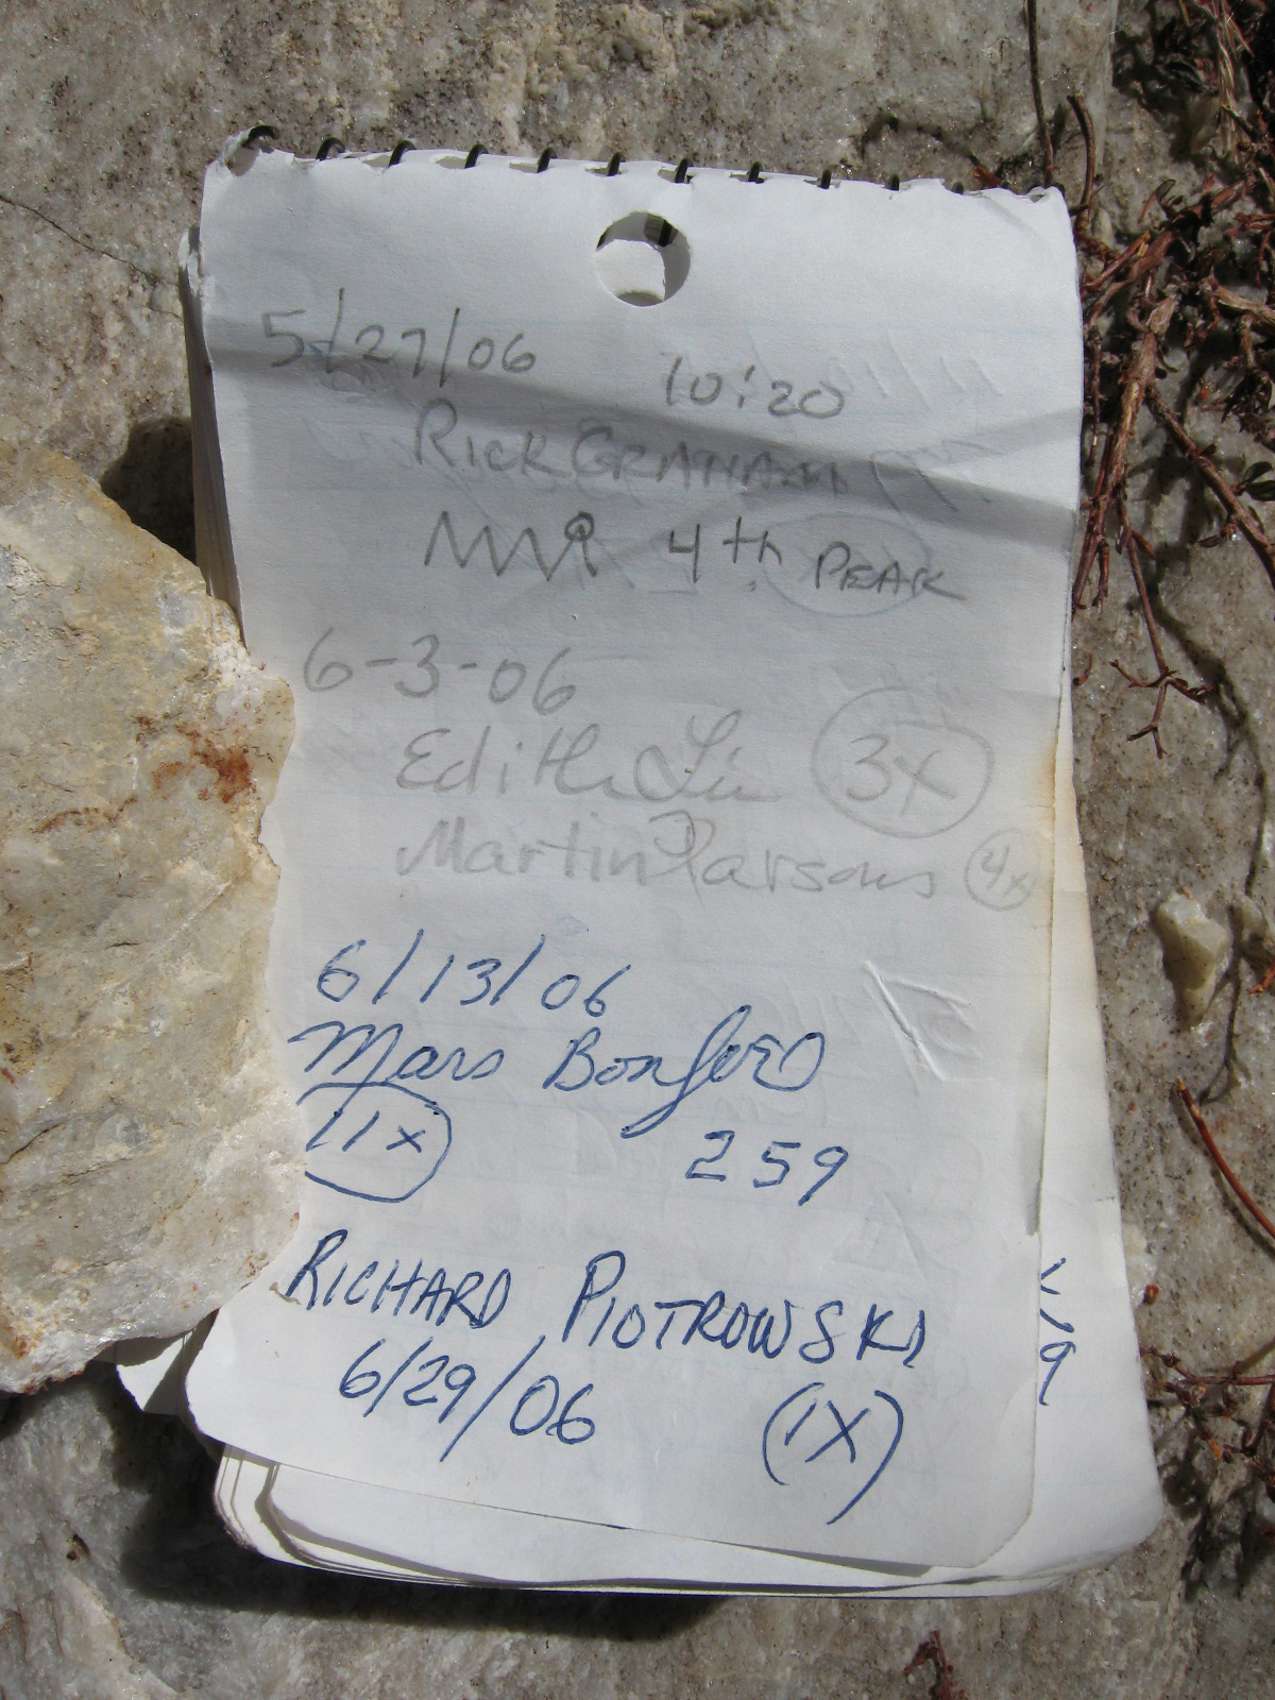 5/27/06 10:20
Rick Graham
4th Peak
6-3-06
Edith Liu 3x
Martin Parsons 4x
6/13/06
Mars Bonfire
11x 259
RICHARD PIOTROWSKI
6/29/06 (1X)